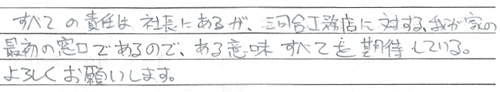 すべての責任は社長にあるが、三河合工務店に対する、我が家の
最初の窓口であるので、ある意味すべてを期待している。
よろしくお願いします。